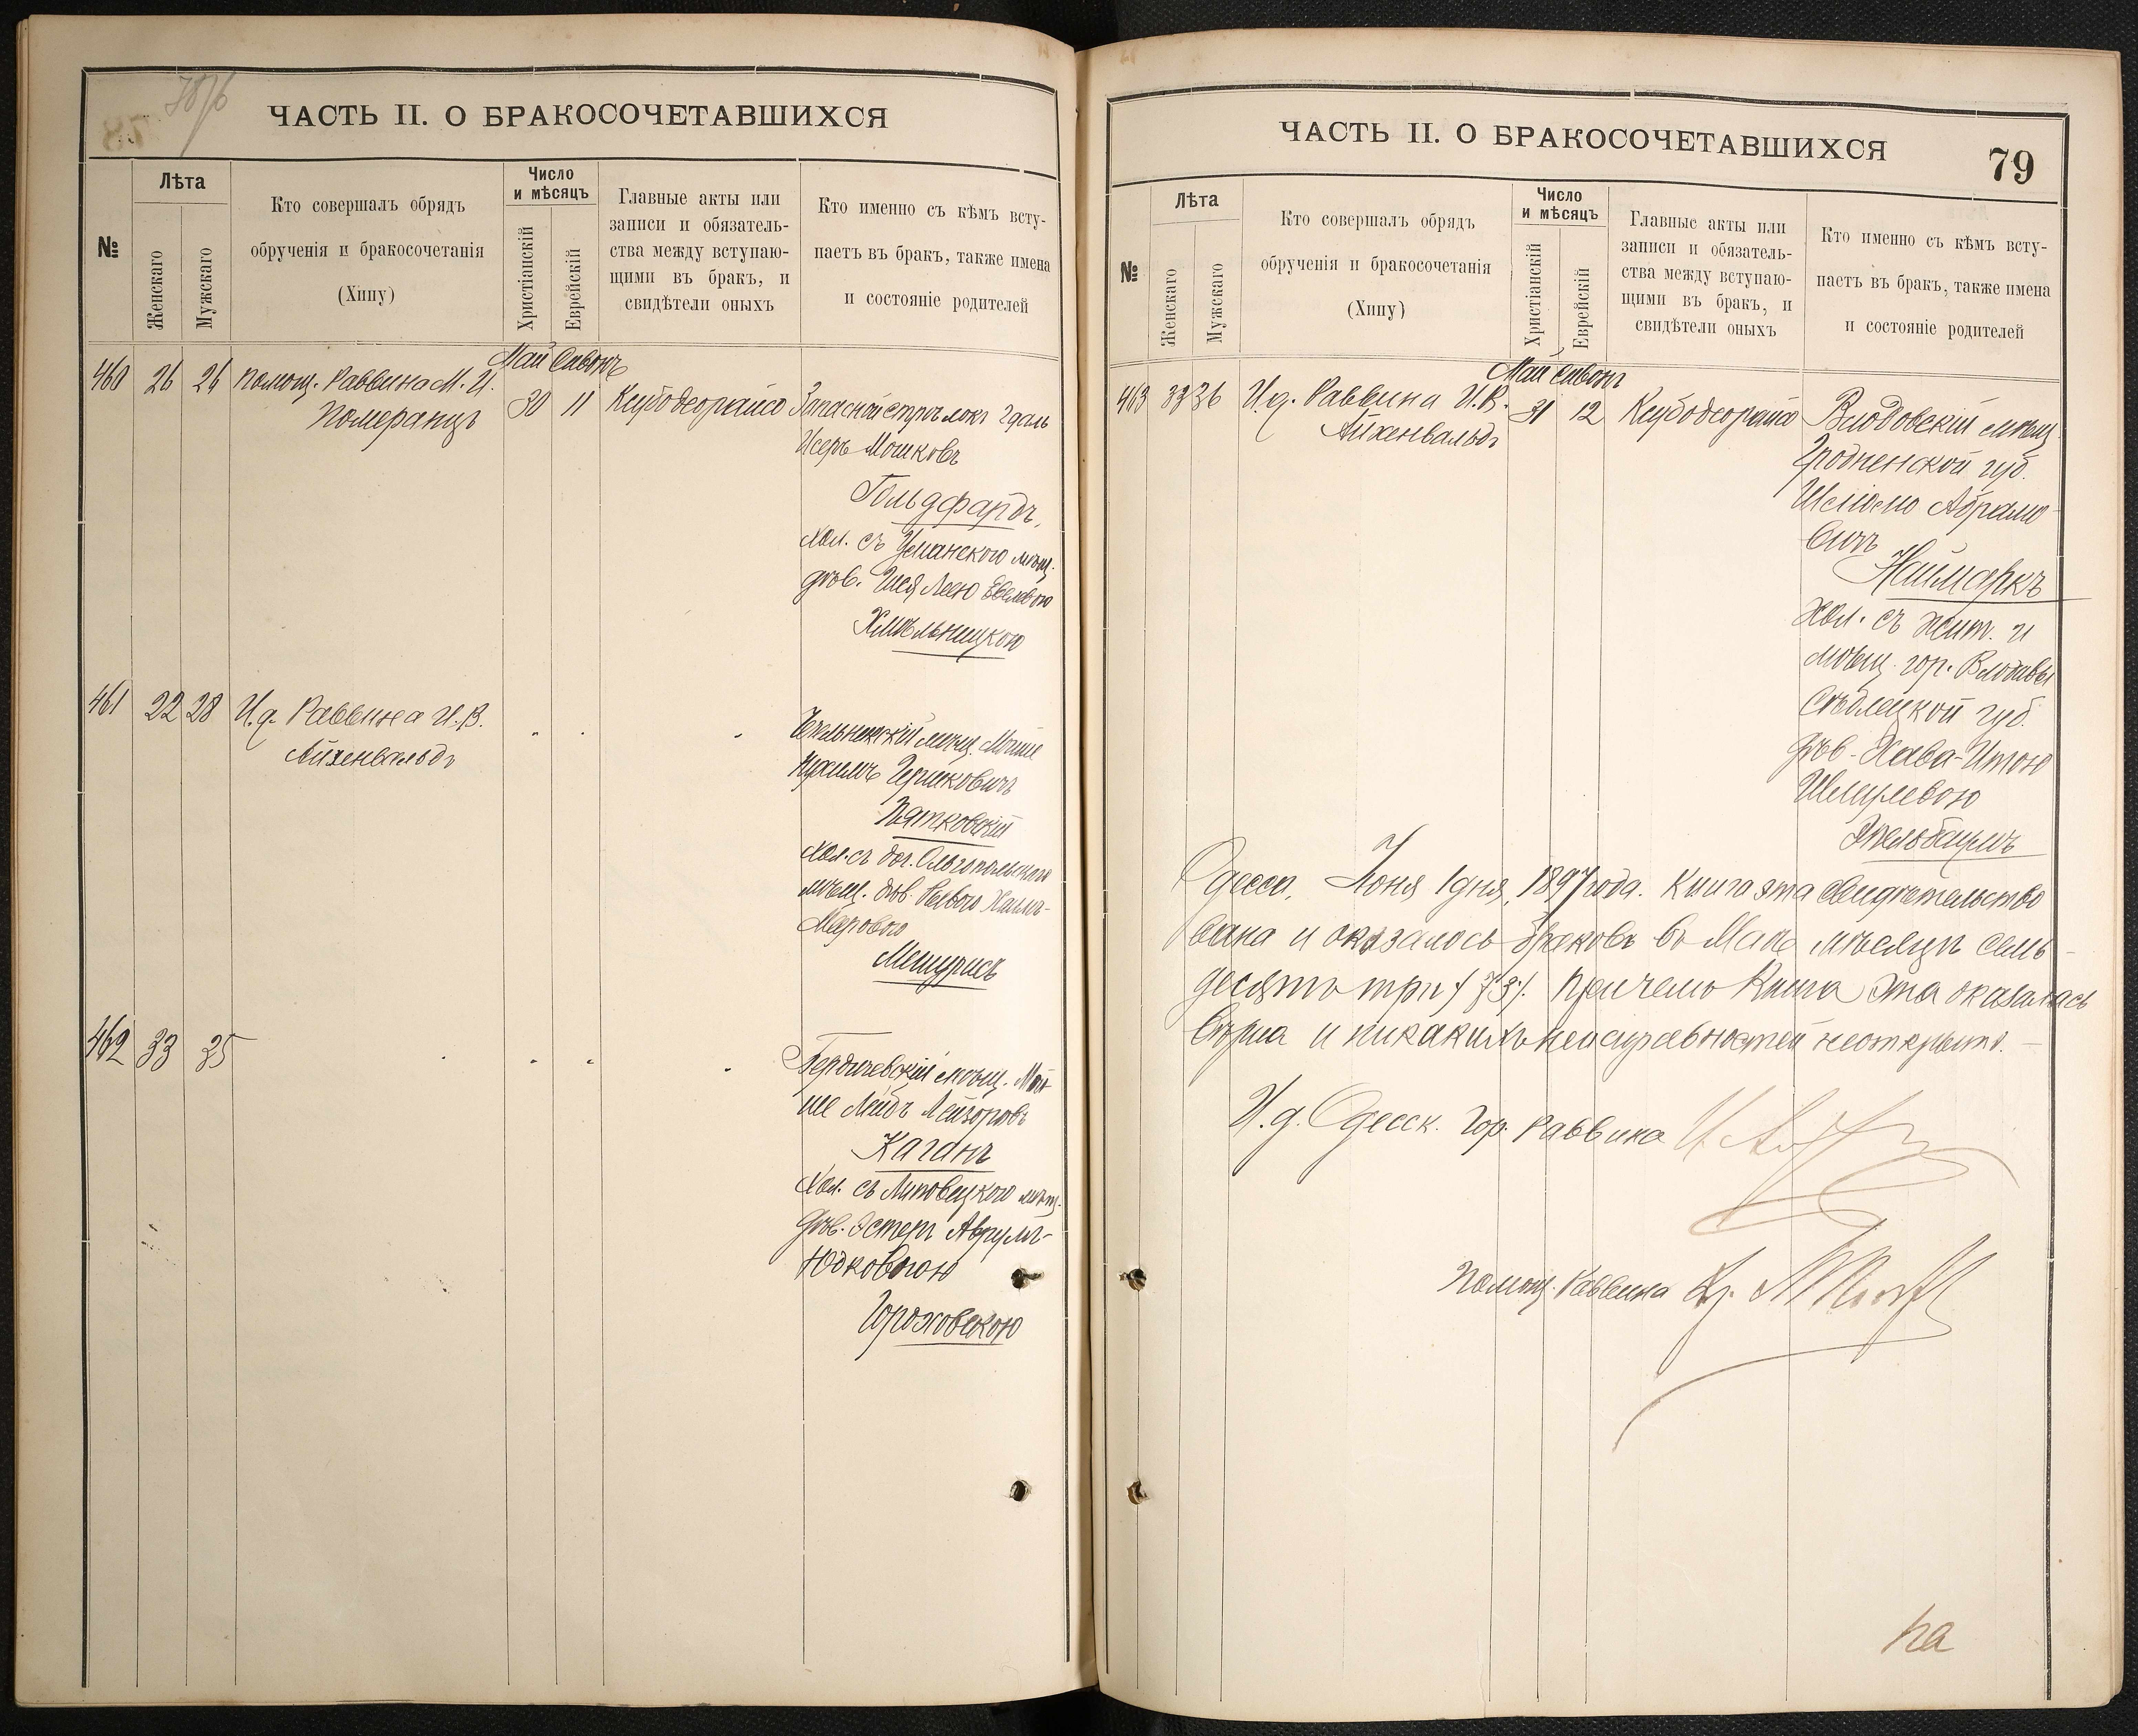 78/6
ЧАСТЬ II. О БРАКОСОЧЕТАВШИХСЯ
№
Лѣта
Женскаго
Мужскаго
Кто совершалъ обрядъ
обрученія и бракосочетанія
(Хипу)
Число
и мѣсяцъ
Христіанскій
Еврейскій
Главные акты или
записи и обязатель-
ства между вступаю-
щими въ бракъ, и
свидѣтели оныхъ
Кто именно съ кѣмъ всту-
паетъ въ бракъ, также имена
и состояніе родителей
Май Сивонъ
460 26 26 Помощ. Раввина М. И.
Померанцъ
30 11 Ксубо деорайсо
Запасной стрѣлокъ
Исеръ Мошковъ
Гольдфарбъ,
хол. съ Уманского мѣщ.
дѣв. Лею
Хмѣльницкою
461 22 28 И. д. Раввина И. В.
Айхенвальдъ
" " "
мѣщ. Мойше
Гершковичъ
Пятковскій
хол. съ доч. Ольгопольского
мѣщ. дѣв. Хаимъ-
Меровою
462 33 35
" " " "
Бердичевскій мѣщ. Мой-
ше Лейбъ Лейзоровъ
Каганъ
хол. съ Липовецкого мѣщ.
дѣв. Эстеръ Аврумъ-
Юдковною
Гороховскою
ЧАСТЬ II. О БРАКОСОЧЕТАВШИХСЯ
79
№
Лѣта
Женскаго
Мужскаго
Кто совершалъ обрядъ
обрученія и бракосочетанія
(Хипу)
Число
и мѣсяцъ
Христіанскій
Еврейскій
Главные акты или
записи и обязатель-
ства между вступаю-
щими въ бракъ, и
свидѣтели оныхъ
Кто именно съ кѣмъ всту-
паетъ въ бракъ, также имена
и состояніе родителей
Май Сивонъ
463 33 36 И. д. Раввина И. В.
Айхенвальдъ
31 12 Ксубо деорайсо
мѣщ.
Гродненской губ.
Абрамо-
вичъ
Наймаркъ
хол. съ жит. и
мѣщ. гор. Влодавы
Сѣдлецкой губ.
дѣв. Хава-Итою
Шмулевою
Одесса, Іюня 1 дня, 1897 года. Книга эта свидѣтельство
вана и оказалось браковъ въ Маѣ мѣсяцѣ семь-
десятъ три /73/. Причемъ Книга эта оказалась
вѣрна и никакихъ неисправностей неоткрыто. —
И. д. Одесск. Гор. Раввина
Помощ. Раввина